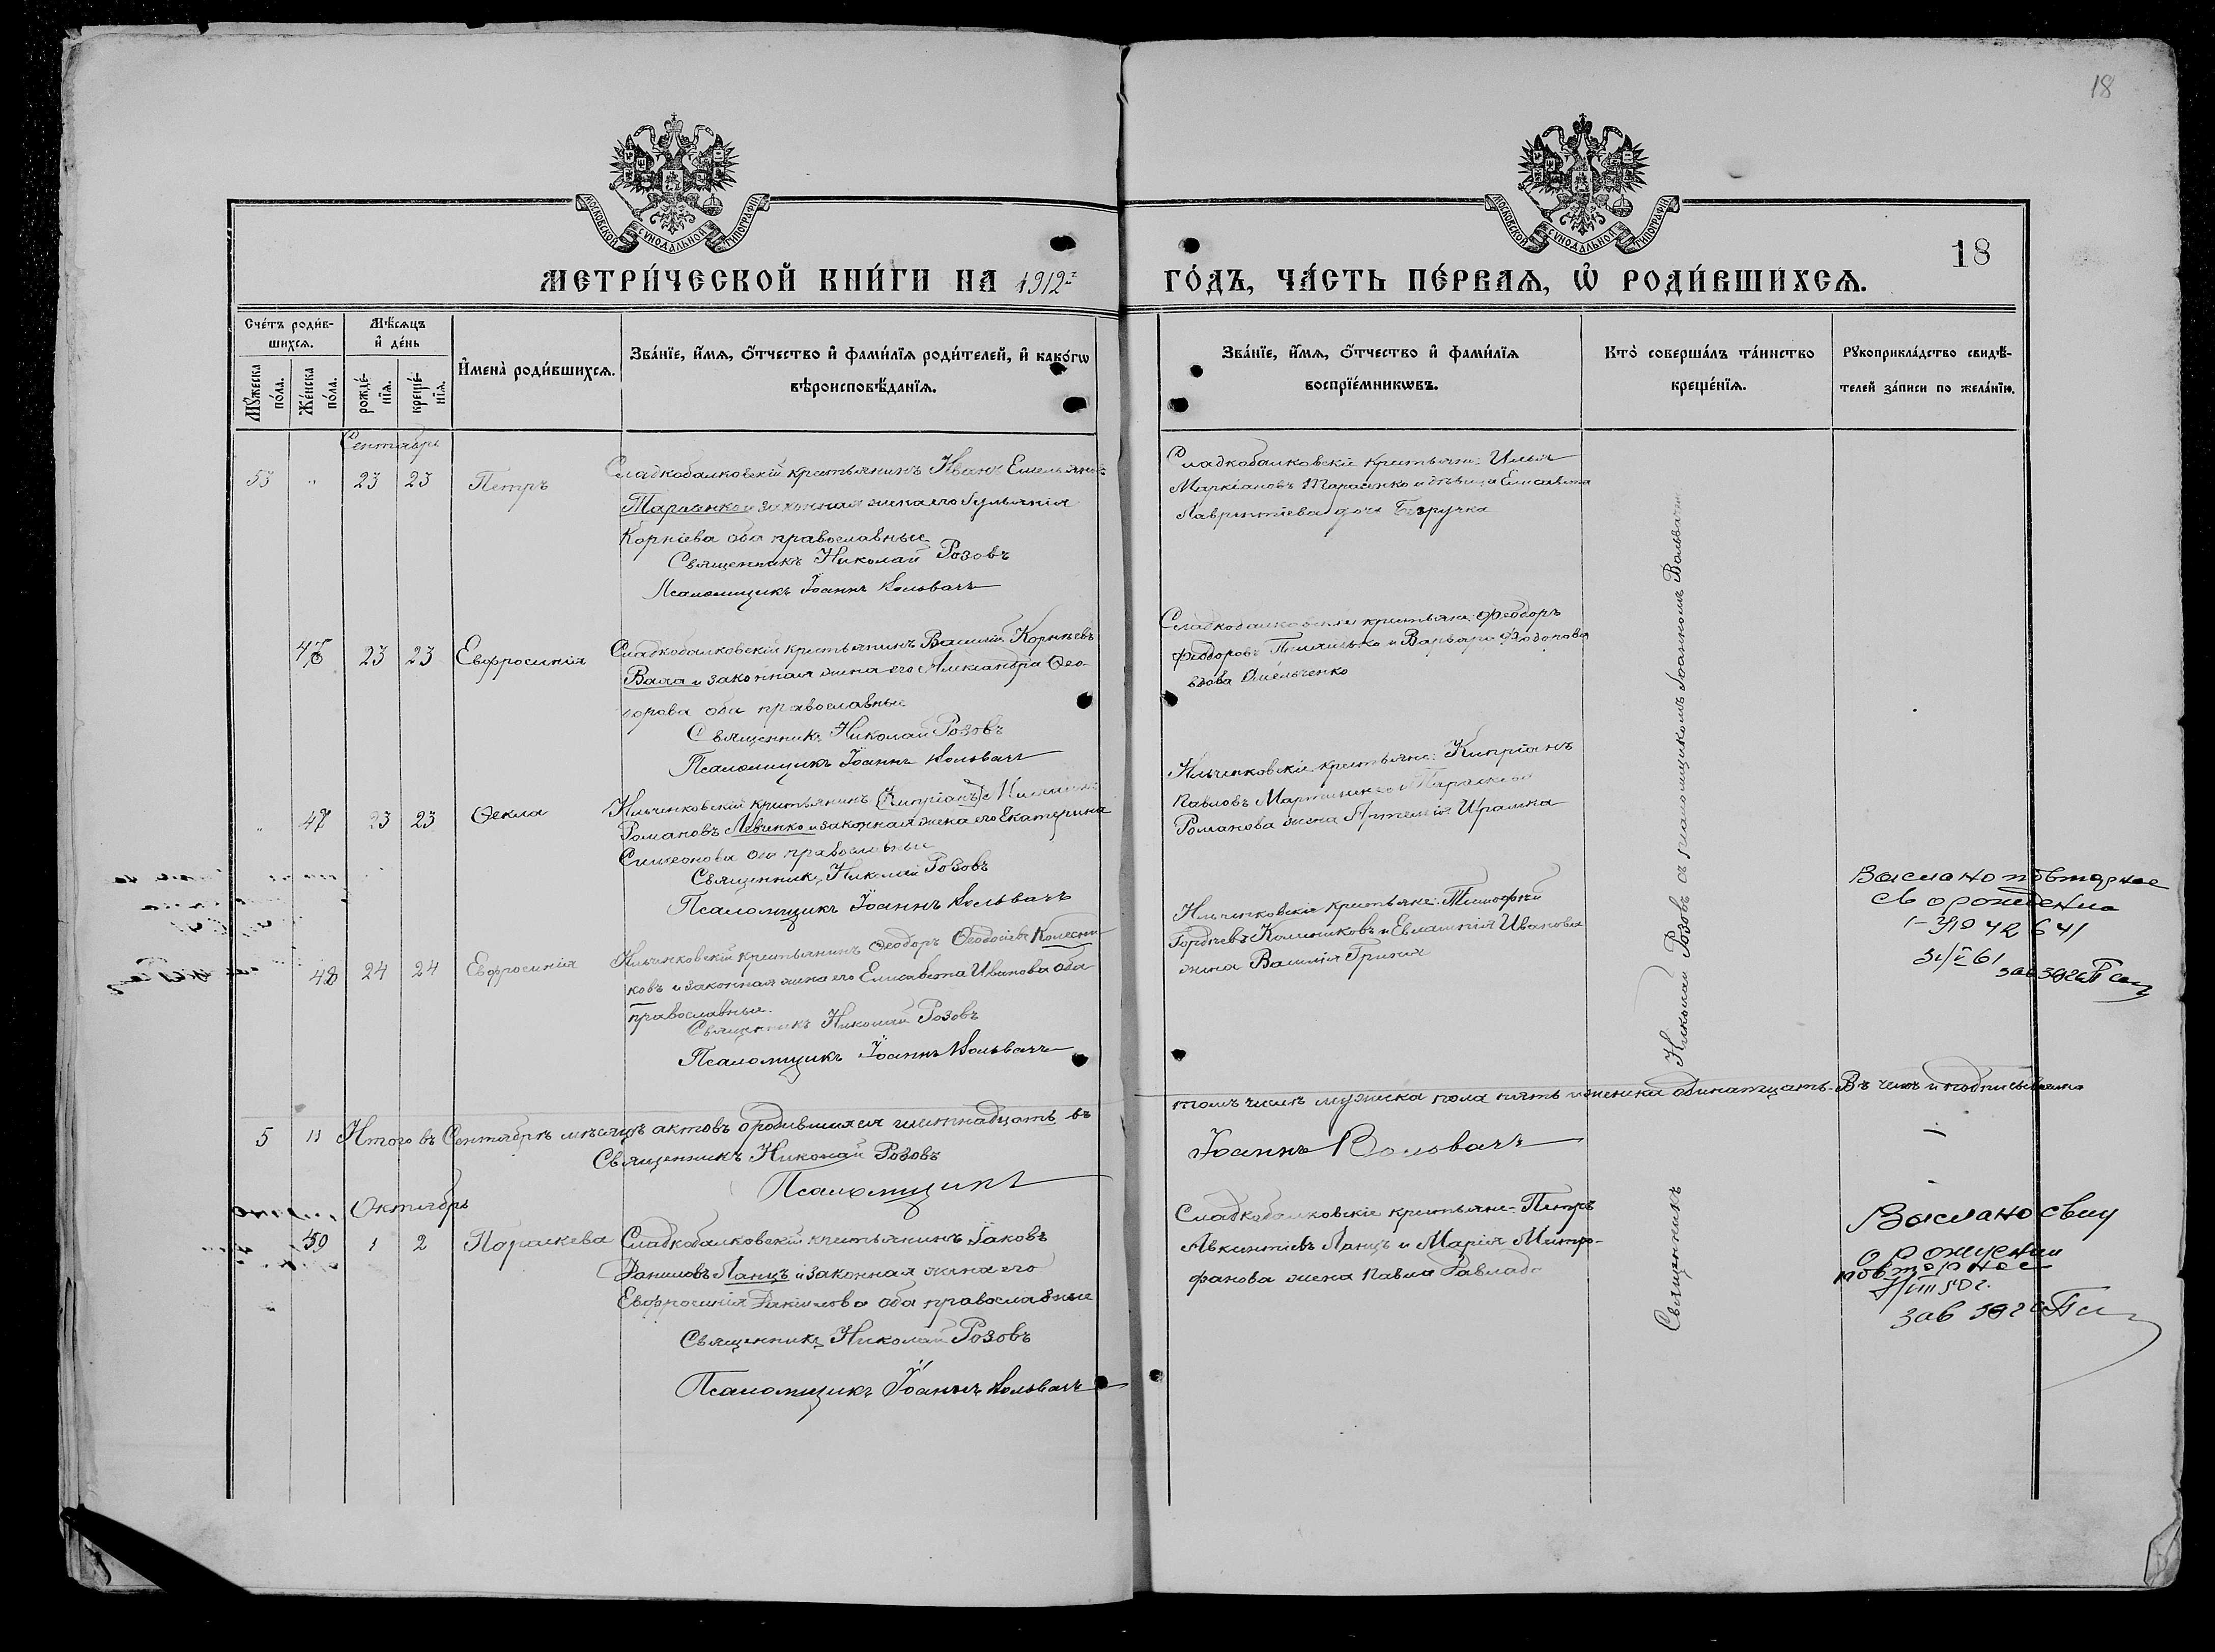 18
МОСКОВСКОЙ СѴНОДАЛЬНОЙ ТИПОГРАФІИ
МОСКОВСКОЙ СѴНОДАЛЬНОЙ ТИПОГРАФІИ
18
МЕТРИ́ЧЕСКОЙ КНИ́ГИ НА 1912 г.
ГО́ДЪ, ЧА́СТЬ ПЕ́РВАѦ, Ѡ҆ РОДИ́ВШИХСѦ.
Сче́тъ роди́в-
шихсѧ.
Мѣ́сѧцъ
и҆ де́нь
Мꙋ́жеска по́ла.
Же́нска по́ла.
рожде́-
нїѧ.
креще́-
нїѧ.
И҆мена̀ роди́вшихсѧ.
Зва́нїе, и҆́мѧ, ѻ҆́тчество и҆ фами́лїѧ роди́телей, и҆ како́гѡ
вѣроисповѣ́данїѧ.
Зва́нїе, и҆́мѧ, ѻ҆́тчество и҆ фами́лїѧ
воспрїе́мникѡвъ.
Кто̀ соверша́лъ та́инство
креще́нїѧ.
Рꙋкоприкла́дство свидѣ́-
телей за́писи по жела́нїю.
Сентябрь
53 " 23 23 Петръ
Сладкобалковскій крестьянинъ Иванъ Емельяновъ
Тараенко и законная жена его Іульянія
Корніева оба православные
Священникъ Николай Розовъ
Псаломщикъ Іоаннъ Вольвачъ
Сладкобалковскіе крестьяне: Илья
Маркіановъ Тараенко и дѣвица Елисавета
Лаврентіева дочь Безручка
46 23 23 Евфросинія
Сладкобалковскій крестьянинъ Василій Корніевъ
Вала и законная жена его Александра Ѳео-
дорова оба православные
Священникъ Николай Розовъ
Псаломщикъ Іоаннъ Вольвачъ
Сладкобалковскіе крестьяне: Ѳеодоръ
Ѳеодоровъ и Варвара Ѳеодорова
вдова Омельченко
" 47 23 23 Ѳекла
Ильченковскій крестьянинъ (Кипріанъ)
Романовъ Левченко и законная жена его Екатерина
Симеонова оба православные
Священникъ Николай Розовъ
Псаломщикъ Іоаннъ Вольвачъ
Ильченковскіе крестьяне: Кипріанъ
Павловъ Мартыненко и Параскева
Романова жена Артемія Ирашка
48 24 24 Евфросинія
Ильченковскій крестьянинъ Ѳеодоръ Ѳеодосіевъ Колесни-
ковъ и законная жена его Елисавета Иванова оба
православные.
Священникъ Николай Розовъ
Псаломщикъ Іоаннъ Вольвачъ
Ильченковскіе крестьяне: Тимофей
Гордѣевъ Колесниковъ и Евлампія Иванова
жена Василія Гриния
Выслано повторное
св о рождении
31/V 61
5 11 Итого въ Сентябрѣ мѣсяцѣ актовъ о родившихся шестнадцать въ
томъ числѣ мужска пола пять и женска одинатцать. Въ чемъ и подписываемся
Священникъ Николай Розовъ
Псаломщикъ
Іоаннъ Вольвачъ
Октябрь
49 1 2 Параскева
Сладкобалковскій крестьянинъ Іаковъ
Даниловъ Ланцъ и законная жена его
Евфросинія Данилова оба православные
Священникъ Николай Розовъ
Псаломщикъ Іоаннъ Вольвачъ
Сладкобалковскіе крестьяне: Петръ
Авксентіевъ Ланцъ и Марія Митро-
фанова жена Павла
Священникъ Николай Розовъ съ псаломщикомъ Іоанномъ Вольвачемъ
Выслано свид
о рождении
повторное
зав загс